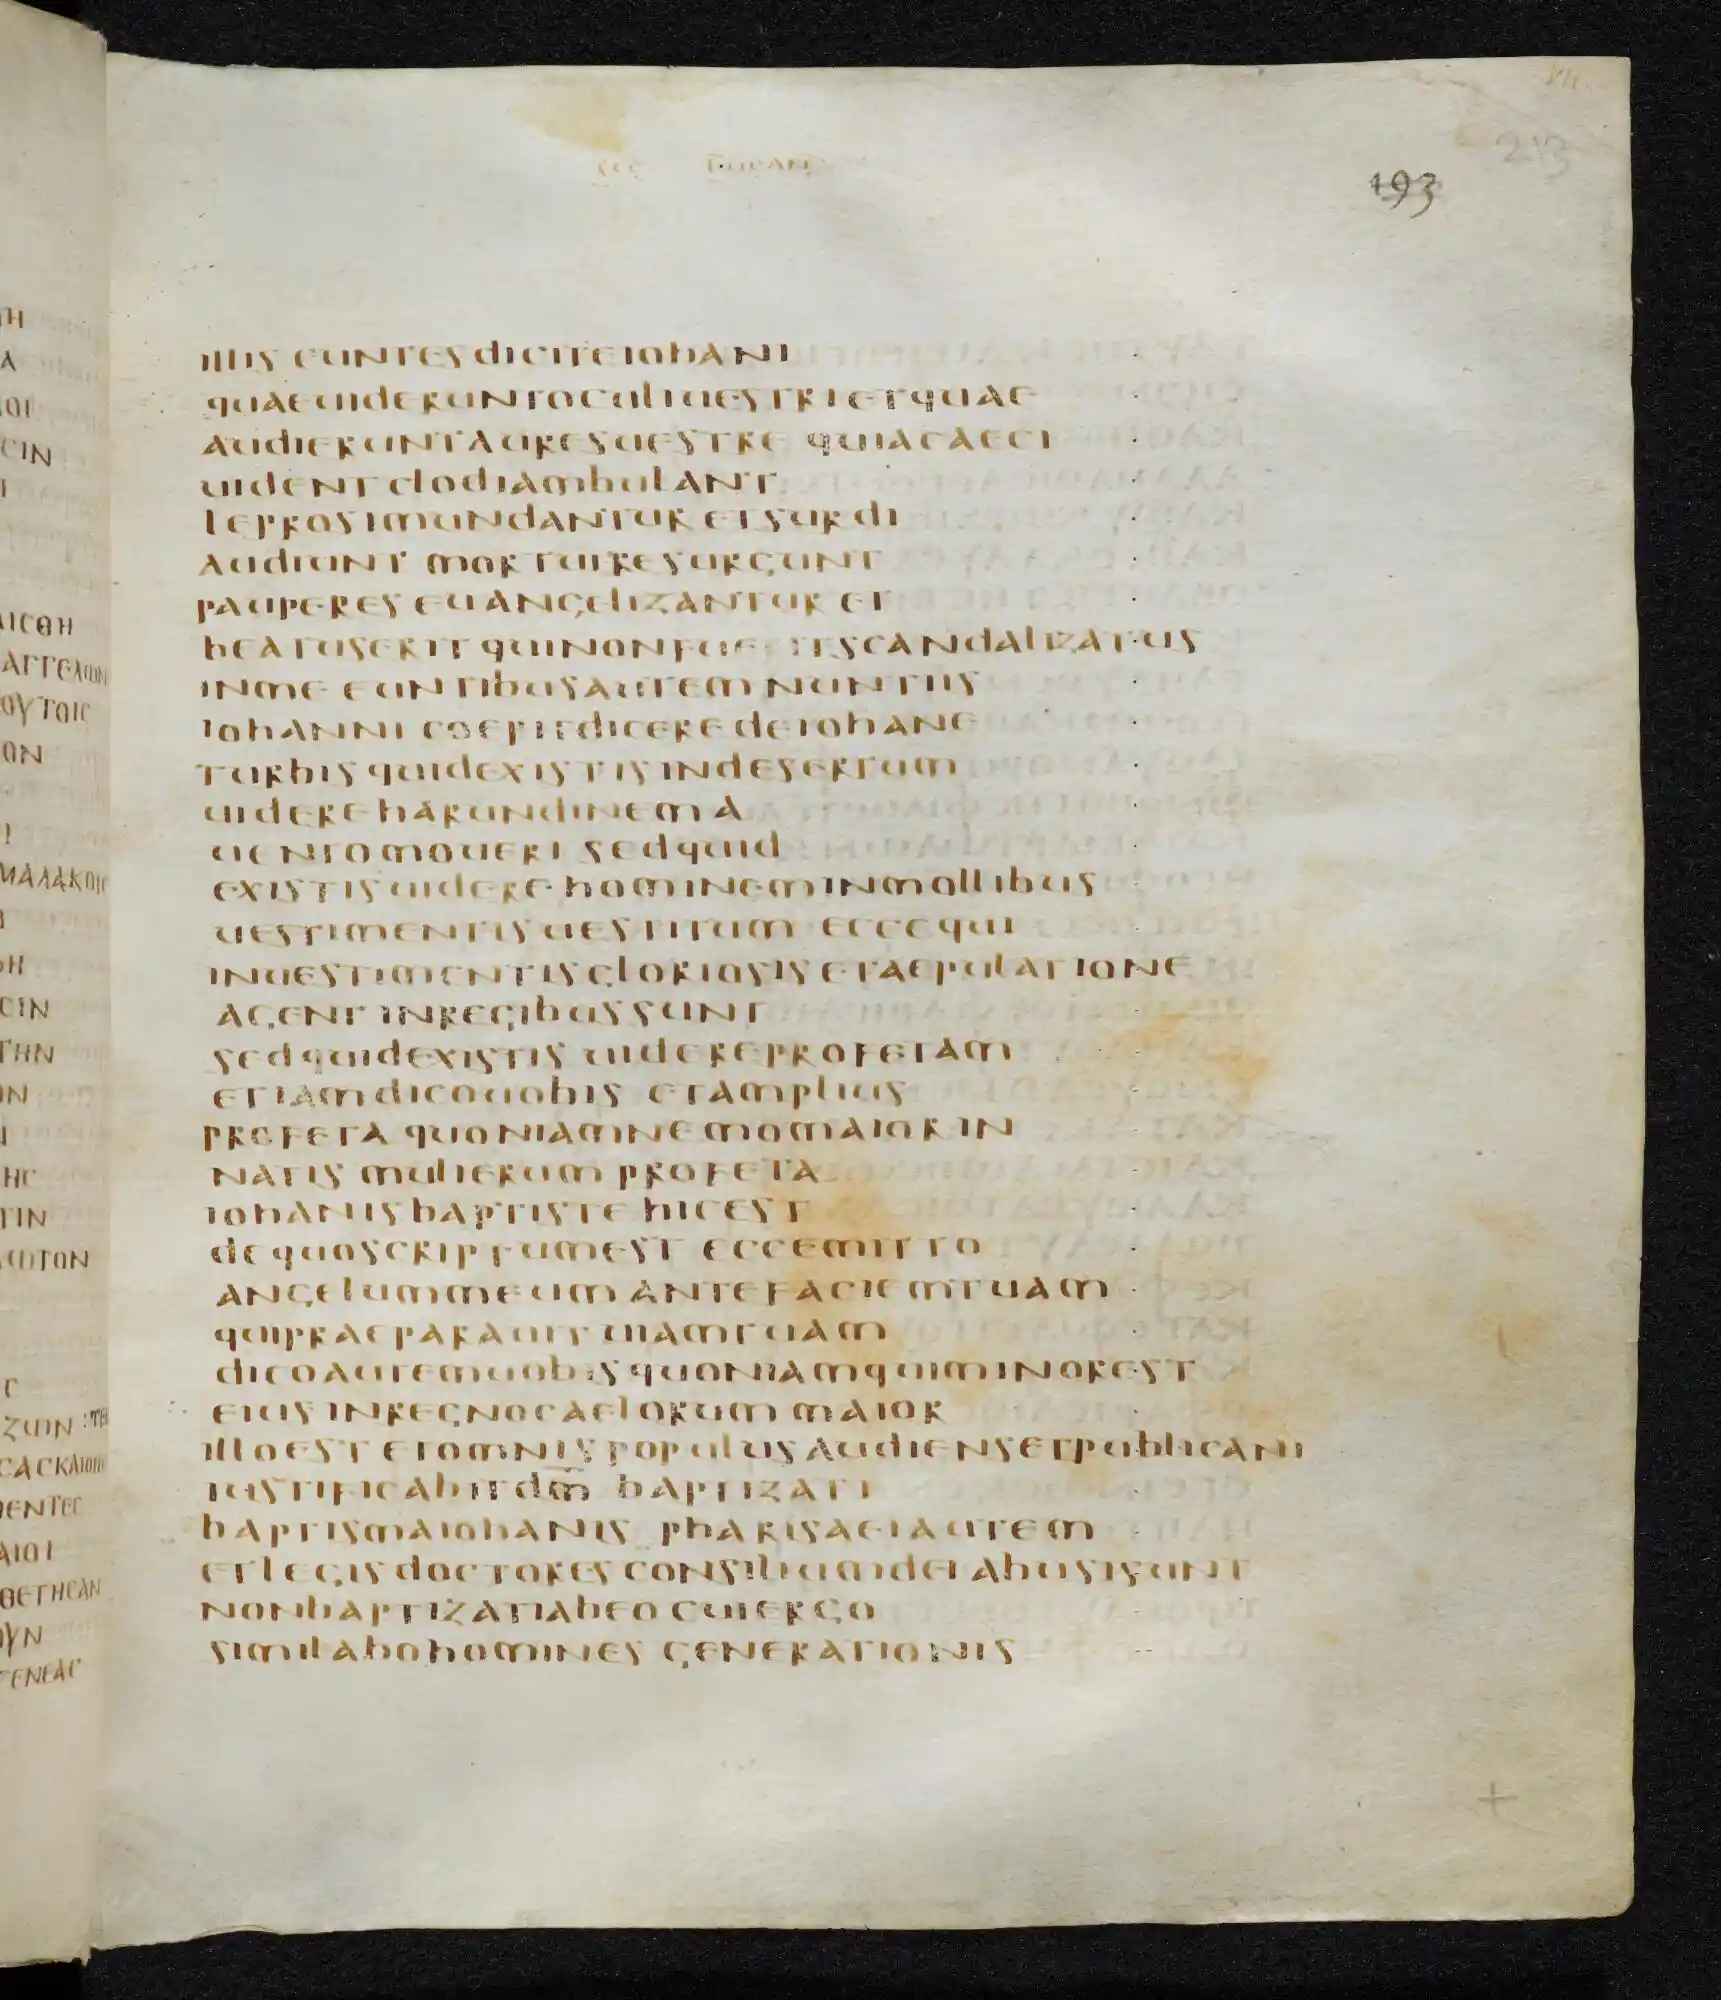 193
illis euntes dicite iohani
quae uiderunt oculi uestri et quae
audierunt aures uestre quia caeci
uident clodi ambulant
leprosi mundantur et surdi
audiunt mortui resurgunt
pauperes euangelizantur et
beatus erit qui non fuerit scandalizatus
in me euntibus autem nuntiis
iohanni coepit dicere de iohane
turbis quid existis in desertum
uidere harundinem a
uento moueri sed quid
existis uidere hominem in mollibus
uestimentis uestitum ecce qui
in uestimentis gloriosis et aepulatione
agent in regibus sunt
sed quid existis uidere profetam
etiam dico uobis et amplius
profeta quoniam nemo maior in
natis mulierum profeta
iohanis baptiste hic est
de quo scriptum est ecce mitto
angelum meum ante faciem tuam
qui praeparauit uiam tuam
dico autem uobis quoniam qui minor est
eius in regno caelorum maior
illo est et omnis populus audiens et publicani
iustificabit dm̅ baptizati
baptisma iohanis pharisaei autem
et legis doctores consilium dei abusi sunt
non baptizati ab eo cui ergo
similabo homines generationis
ΗCΙΝ
ΑΓΓΕΛΩΝ
ΜΑΛΑΚΟΙC